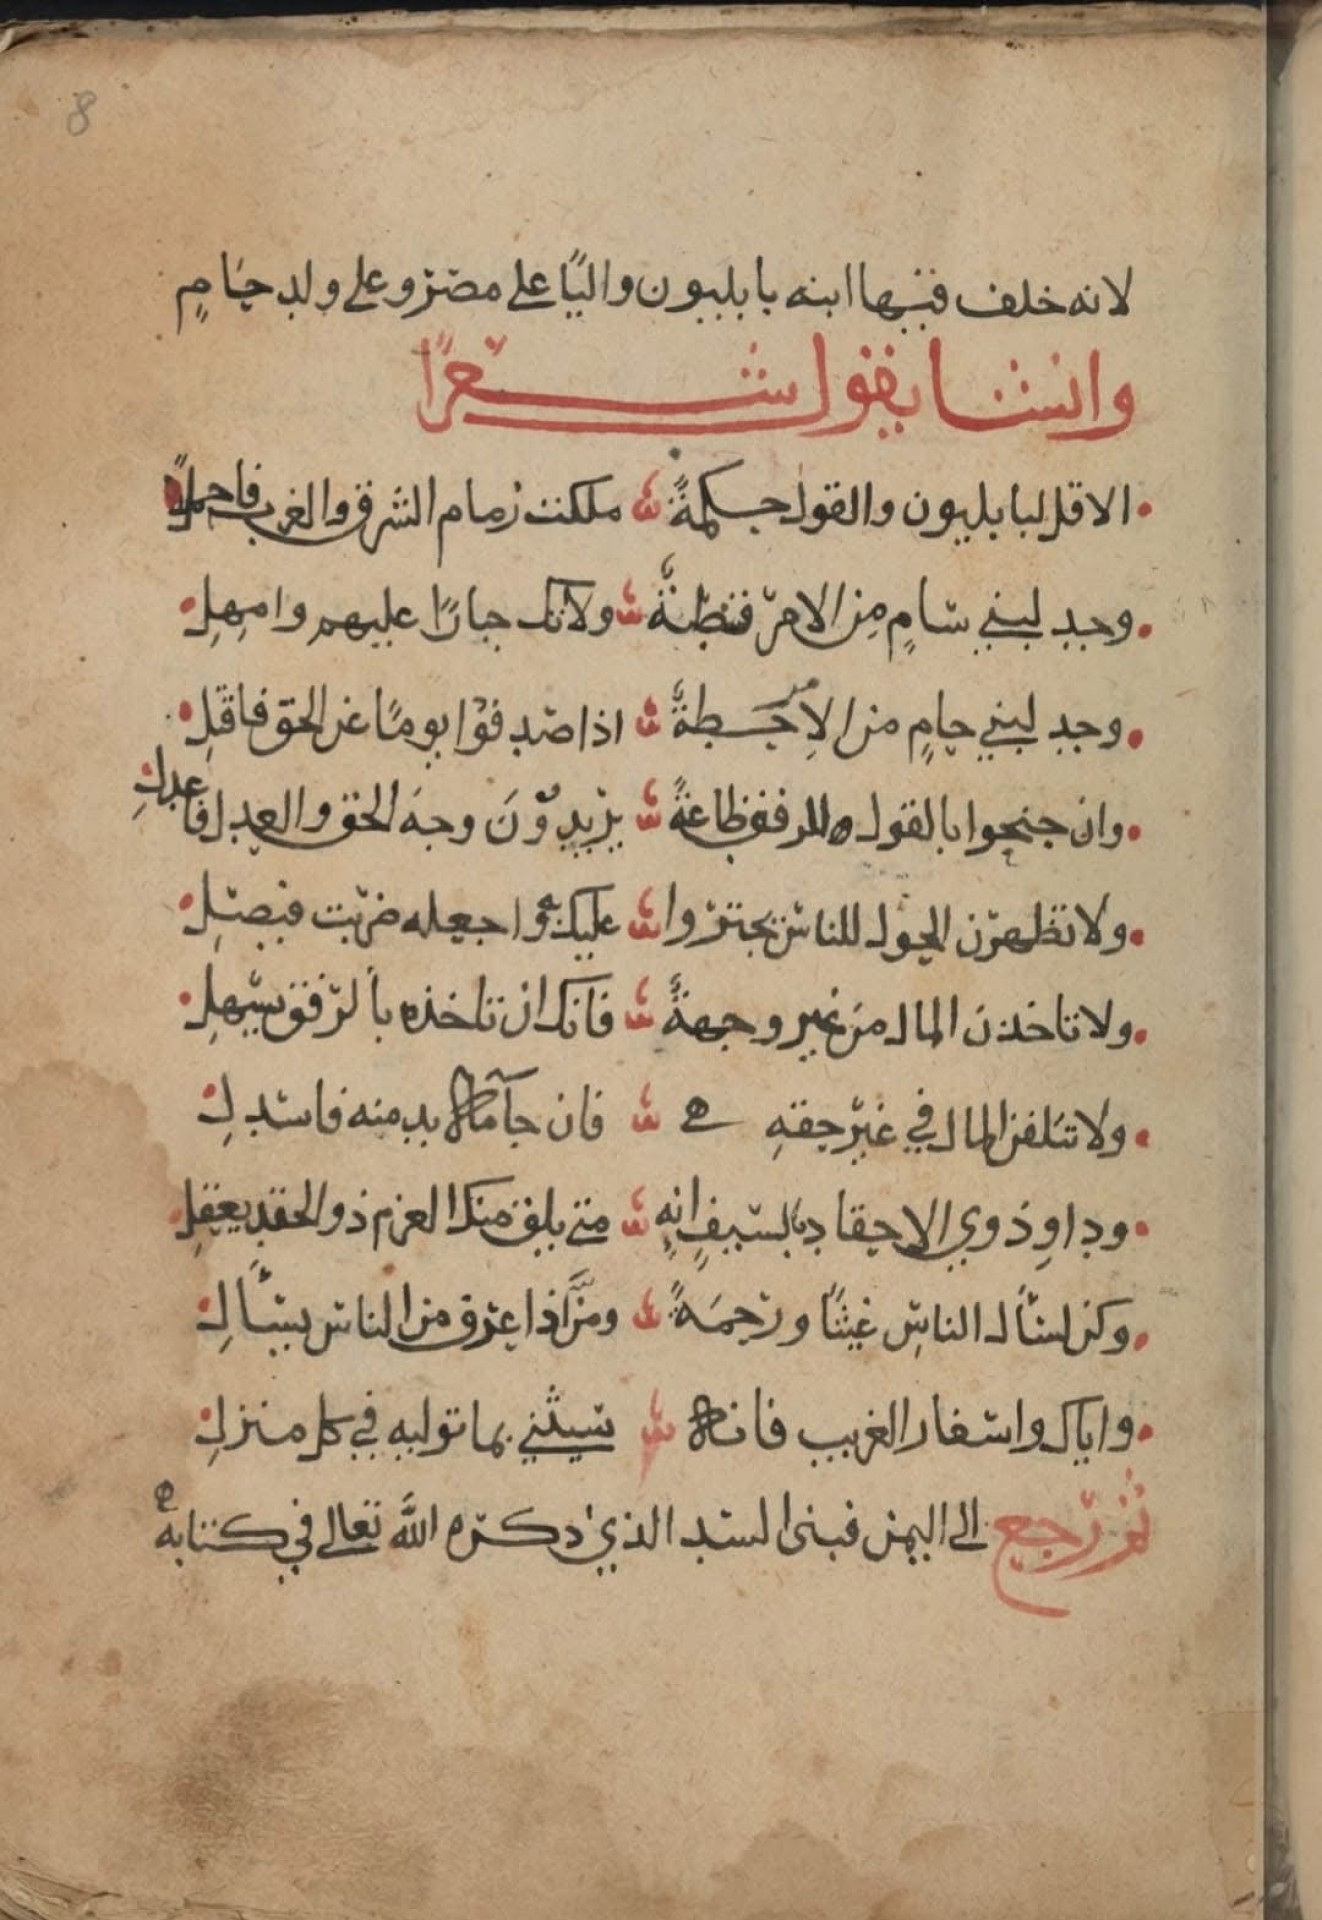 8
لانه خلف فيها ابنه بابليون واليًا على مصر وعلى ولد حامٍ
وانشا يقول شعرًا
الا قل لبابليون والقول حكمةً ملكت زمام الشرق والغرب فاحملِ
وجد لبني سامٍ من الامر فطنةً ولا تك جبارًا عليهم وامهلِ
وجد لبني حامٍ من الامر حطةً اذا صدفوا يومًا عن الحق فاقلِ
وان جنحوا بالقول للرفق طاعةً يريدون وجهَ الحق والعدل فاعدلِ
ولا تظهرن الجول للناس يجتروا عليك واجعله ضربت فيصلِ
ولا تاخذن المال من غير وجههةً فانك ان تاخذه بالرفق يسهلِ
ولا تتلفن المال في غير حقهِ فان جآ مالا بد منه فابتدلِ
وداوِ ذوي الاحقاد بالسيفِ انهِ متى يلق منك العزم ذو الحقد يعقلِ
وكن لسأال الناس غيثًا ورحمةً ومن ذا عرق من الناس يسألِ
واياك واسفار الغريب فانه سيثني بما توليه في كل منزلِ
ثم رجع الى اليمن فبنى السد الذي ذكره الله تعالى في كتابه